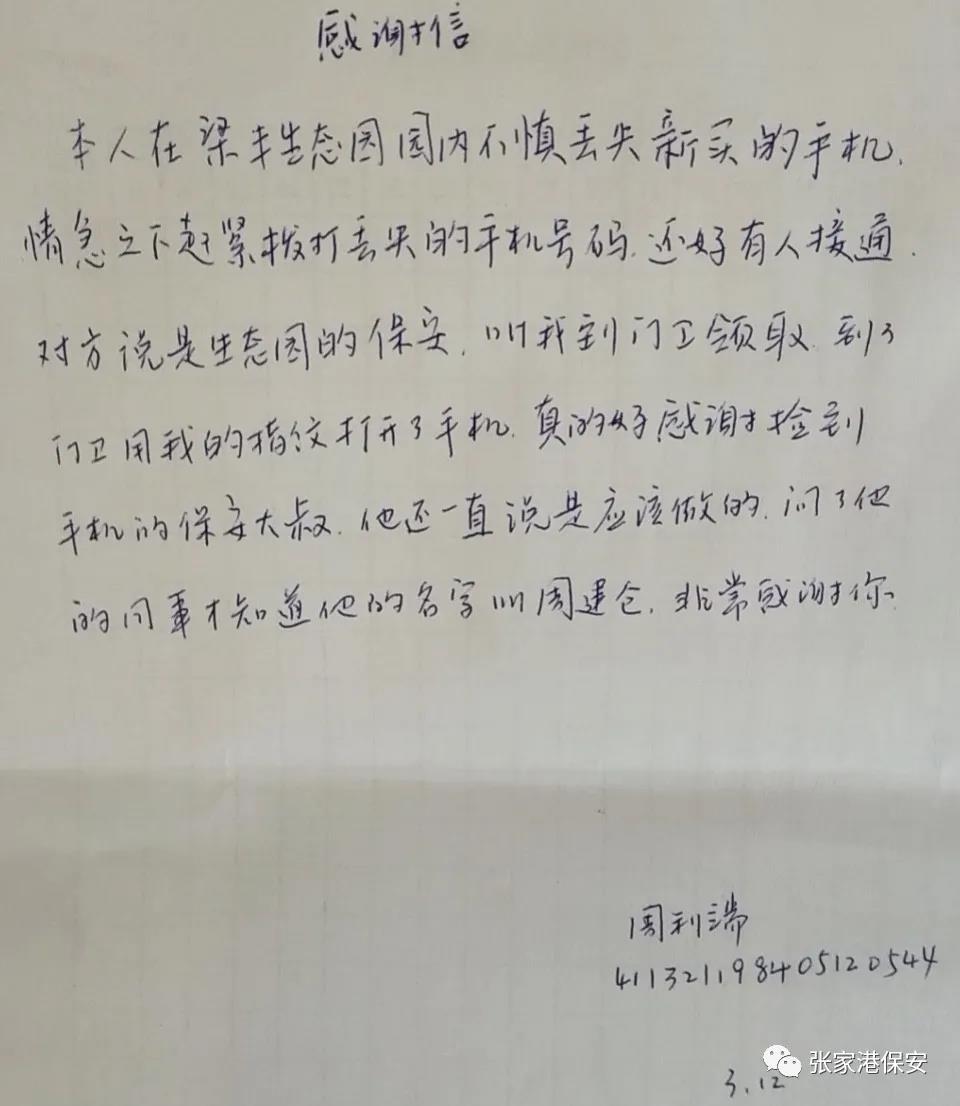 感谢信
本人在梁丰生态园园内不慎丢失新买的手机.
情急之下赶紧拨打丢失的手机号码.还好有人接通.
对方说是生态园的保安.叫我到门卫领取.到了
门卫用我的指纹打开了手机.真的好感谢捡到
手机的保安大叔.他还一直说是应该做的.问了他
的同事才知道他的名字叫周建仓.非常感谢你.
周利端
411321198405120544
3.12
张家港保安